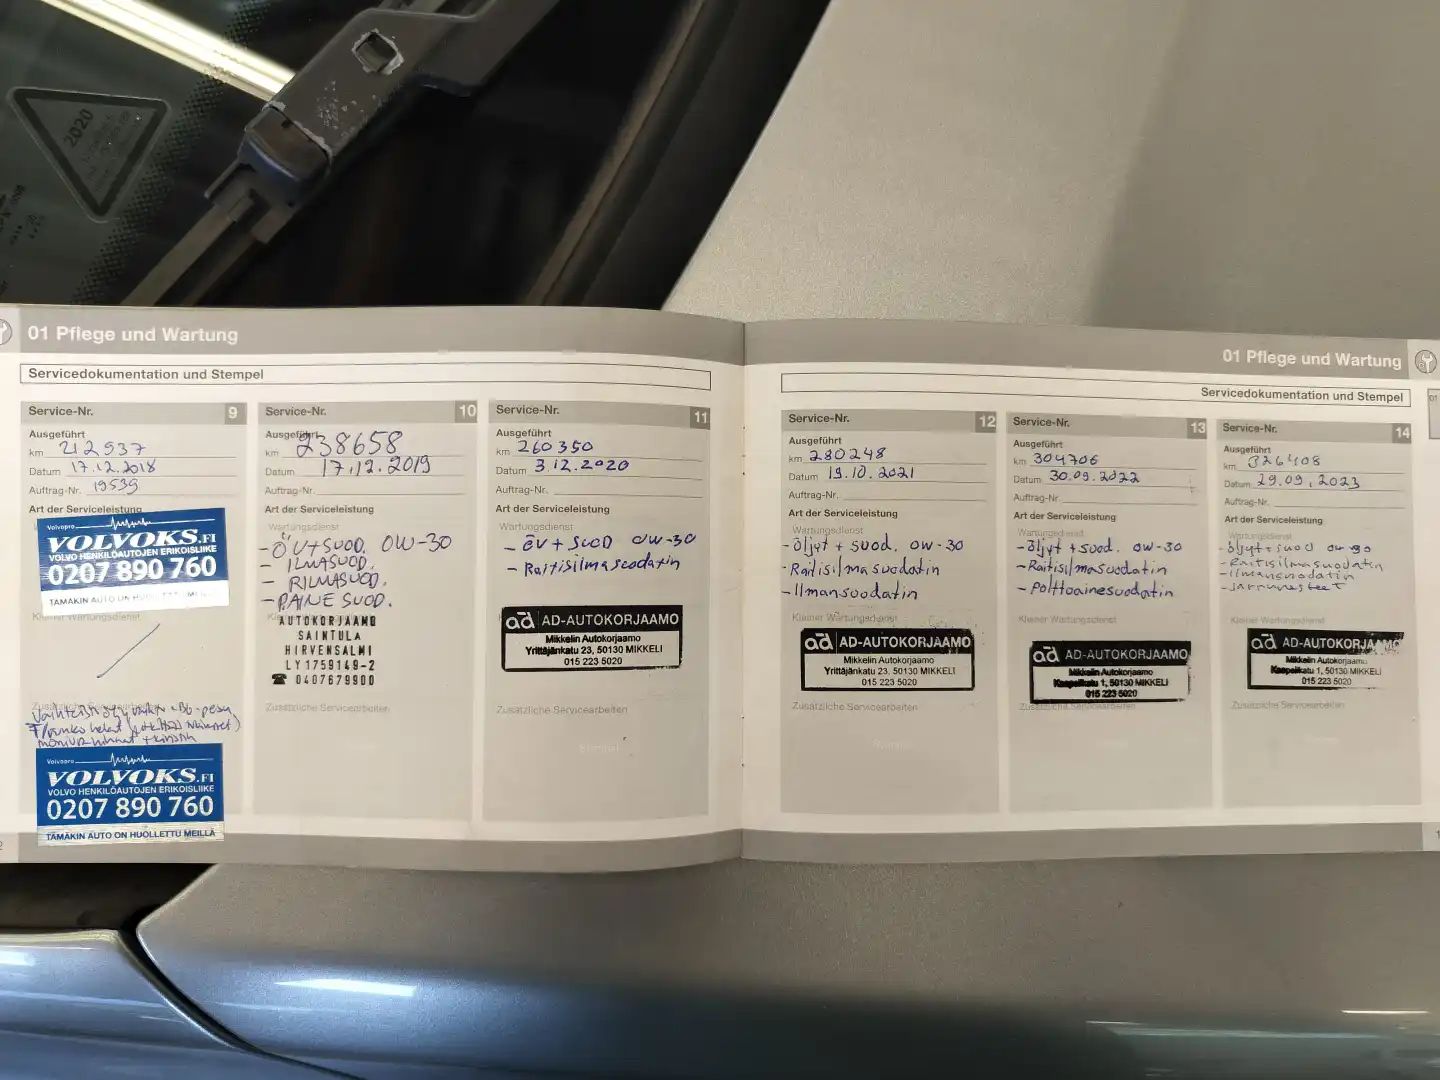 2020
01 Pflege und Wartung
Servicedokumentation und Stempel
Service-Nr. 9
Ausgeführt
km 212537
Datum 17.12.2018
Auftrag-Nr. 19539
Art der Serviceleistung
Volvopro
VOLVOKS.FI
VOLVO HENKILÖAUTOJEN ERIKOISLIIKE
0207 890 760
TÄMÄKIN AUTO ON HUOLLETTU MEILLÄ
Kleiner Wartungsdienst
Volvopro
VOLVOKS.FI
VOLVO HENKILÖAUTOJEN ERIKOISLIIKE
0207 890 760
TÄMÄKIN AUTO ON HUOLLETTU MEILLÄ
Service-Nr. 10
Ausgeführt
km 238658
Datum 17.12.2019
Auftrag-Nr.
Art der Serviceleistung
Wartungsdienst
- ÖV+SUOD. 0W-30
- ILMASUOD.
- RILMASUOD.
- P.AINE SUOD.
AUTOKORJAAMO
SAINTULA
HIRVENSALMI
LY1759149-2
☎ 0407679900
Zusätzliche Servicearbeiten
Service-Nr. 11
Ausgeführt
km 260350
Datum 3.12.2020
Auftrag-Nr.
Art der Serviceleistung
Wartungsdienst
- ÖV + SUOD 0W-30
- Raitisilmasuodatin
ad AD-AUTOKORJAAMO
Mikkelin Autokorjaamo
Yrittäjänkatu 23, 50130 MIKKELI
015 223 5020
Zusätzliche Servicearbeiten
Stempel
01 Pflege und Wartung
Servicedokumentation und Stempel
01
Service-Nr. 12
Ausgeführt
km 280248
Datum 19.10.2021
Auftrag-Nr.
Art der Serviceleistung
Wartungsdienst
- Öljyt + suod. 0W-30
- Raitisilmasuodatin
- Ilmansuodatin
Kleiner Wartungsdienst
ad AD-AUTOKORJAAMO
Mikkelin Autokorjaamo
Yrittäjänkatu 23, 50130 MIKKELI
015 223 5020
Zusätzliche Servicearbeiten
Service-Nr. 13
Ausgeführt
km 304706
Datum 30.09.2022
Auftrag-Nr.
Art der Serviceleistung
Wartungsdienst
- Öljyt + suod. 0W-30
- Raitisilmasuodatin
- Polttoainesuodatin
Kleiner Wartungsdienst
ad AD-AUTOKORJAAMO
Mikkelin Autokorjaamo
Kaapelikatu 1, 50130 MIKKELI
015 223 5020
Zusätzliche Servicearbeiten
Service-Nr. 14
Ausgeführt
km 326408
Datum 29.09.2023
Auftrag-Nr.
Art der Serviceleistung
Wartungsdienst
- Öljyt + suod 0W-30
- Raitisilmasuodatin
- Ilmansuodatin
- Jarrunesteet
Kleiner Wartungsdienst
ad AD-AUTOKORJAAMO
Mikkelin Autokorjaamo
Kaapelikatu 1, 50130 MIKKELI
015 223 5020
Zusätzliche Servicearbeiten